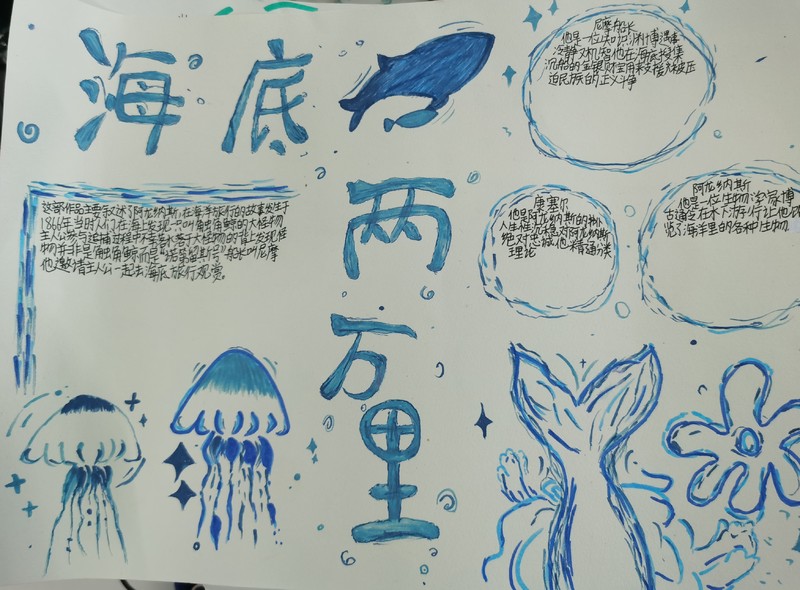 海底
两万里
这部作品主要叙述了阿龙纳斯,在海洋旅行的故事发生于
1866年当时人们在海上发现一只叫独角鲸的大怪物
主人公参与追捕过程中不幸落于大怪物的背上发现怪
物并非是独角鲸而是"诺第留斯号"船长叫尼摩
他邀请主人公一起去海底旅行观赏。
尼摩船长
他是一位知识渊博遇事
冷静又机智他在海底搜集
沉船的金银财宝用来支援被压
迫民族的正义斗争
康塞尔
他是阿龙纳斯的仆
人生性沉稳对阿龙纳斯
绝对忠诚他精通分类
理论
阿龙纳斯
他是一位生物学家博
古通今在水下游行让他
览了海洋里的各种生物